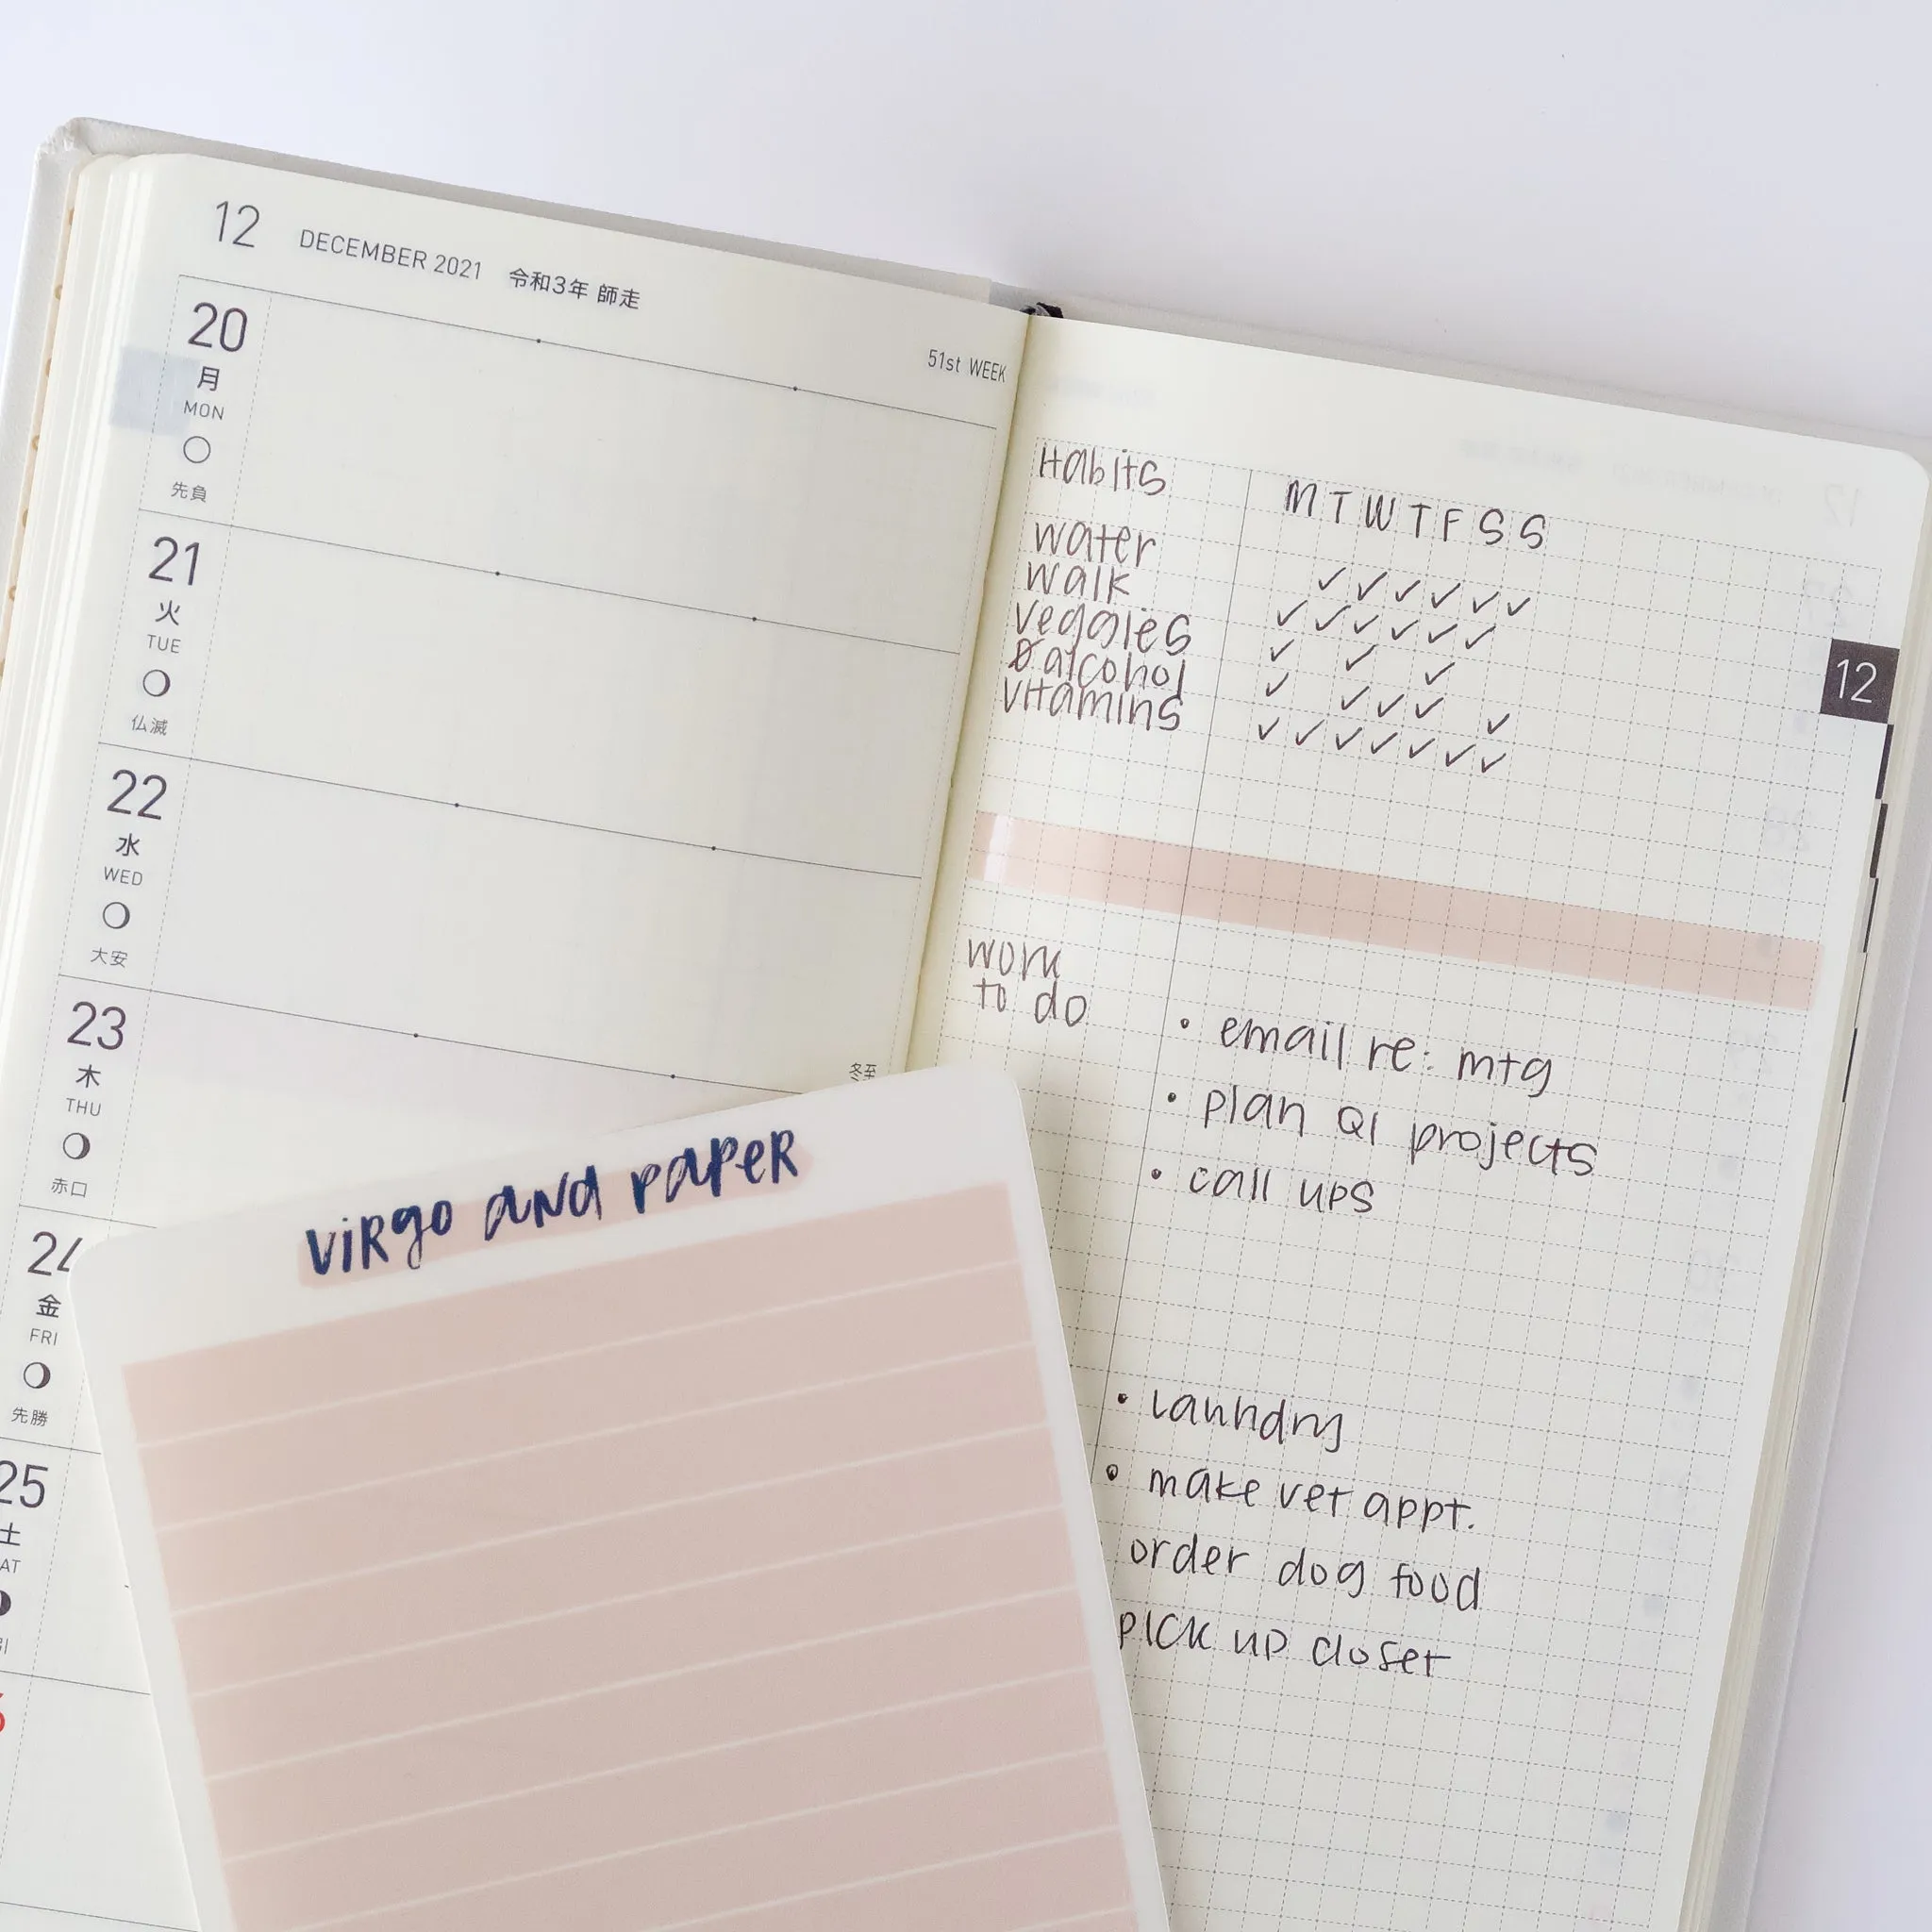 12 DECEMBER 2021 令和3年 師走
51st WEEK
20
月
MON
先負
21
火
TUE
仏滅
22
水
WED
大安
23
木
THU
赤口
冬至
24
金
FRI
先勝
25
土
Habits M T W T F S S
water ✓ ✓ ✓ ✓ ✓ ✓
walk ✓ ✓ ✓ ✓ ✓ ✓
veggies ✓ ✓ ✓
Ø alcohol ✓ ✓ ✓ ✓ ✓
vitamins ✓ ✓ ✓ ✓ ✓ ✓ ✓
12
work
to do
• email re: mtg
• plan Q1 projects
• call UPS
• laundry
• make vet appt.
order dog food
pick up closet
VIRGO AND PAPER